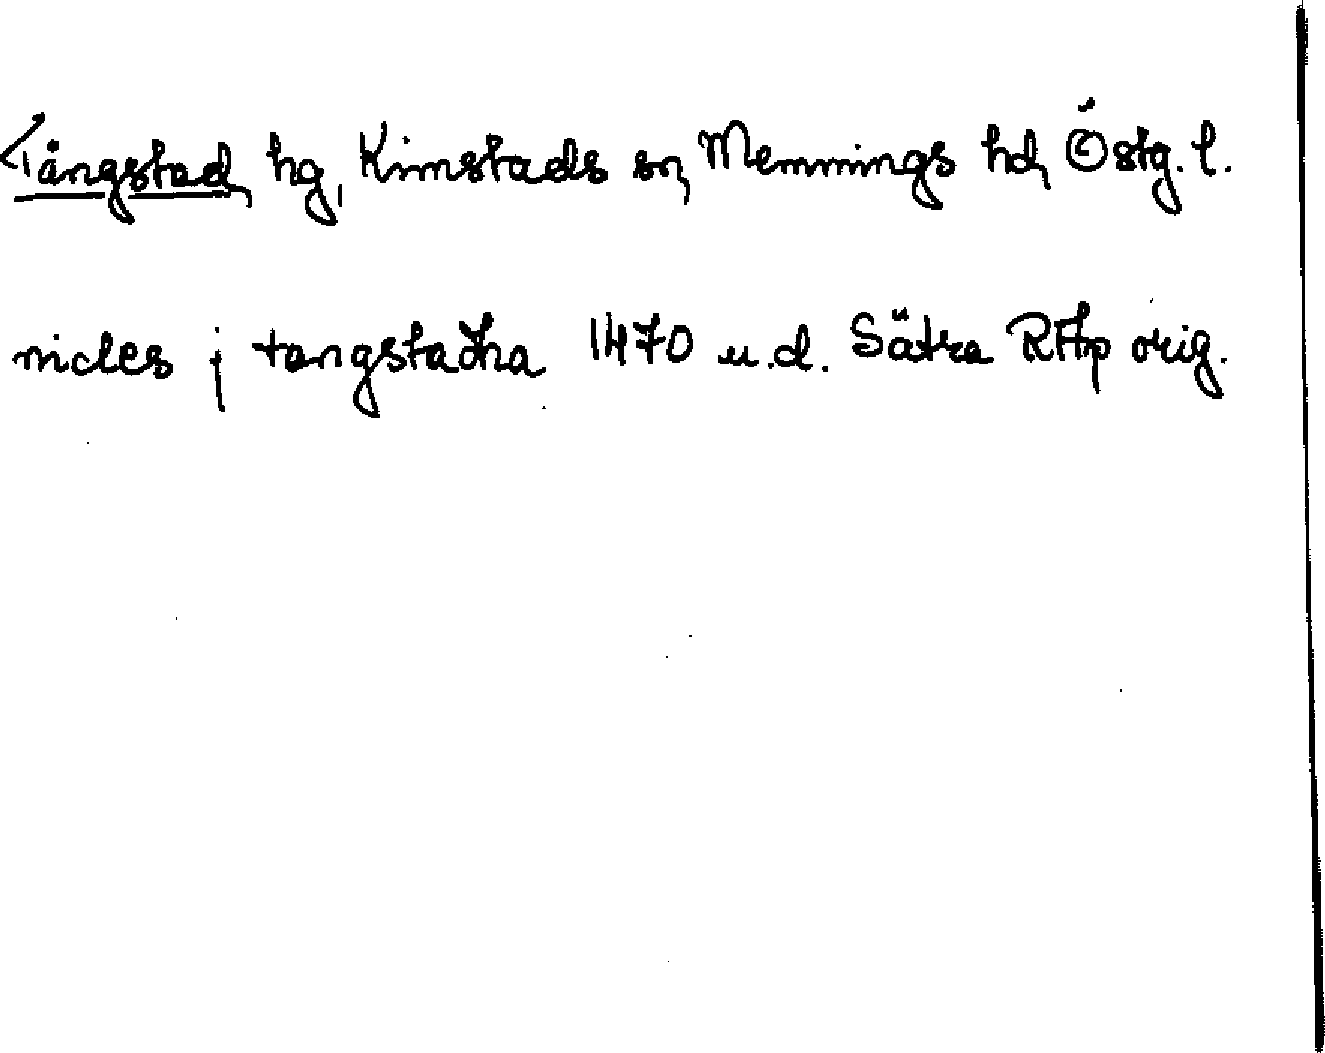 Tångstad, hg, Kimstads sn, Memmings hd, Östg. l.
nicles j tangstadha 1470 u.d. Sätra RAp orig.